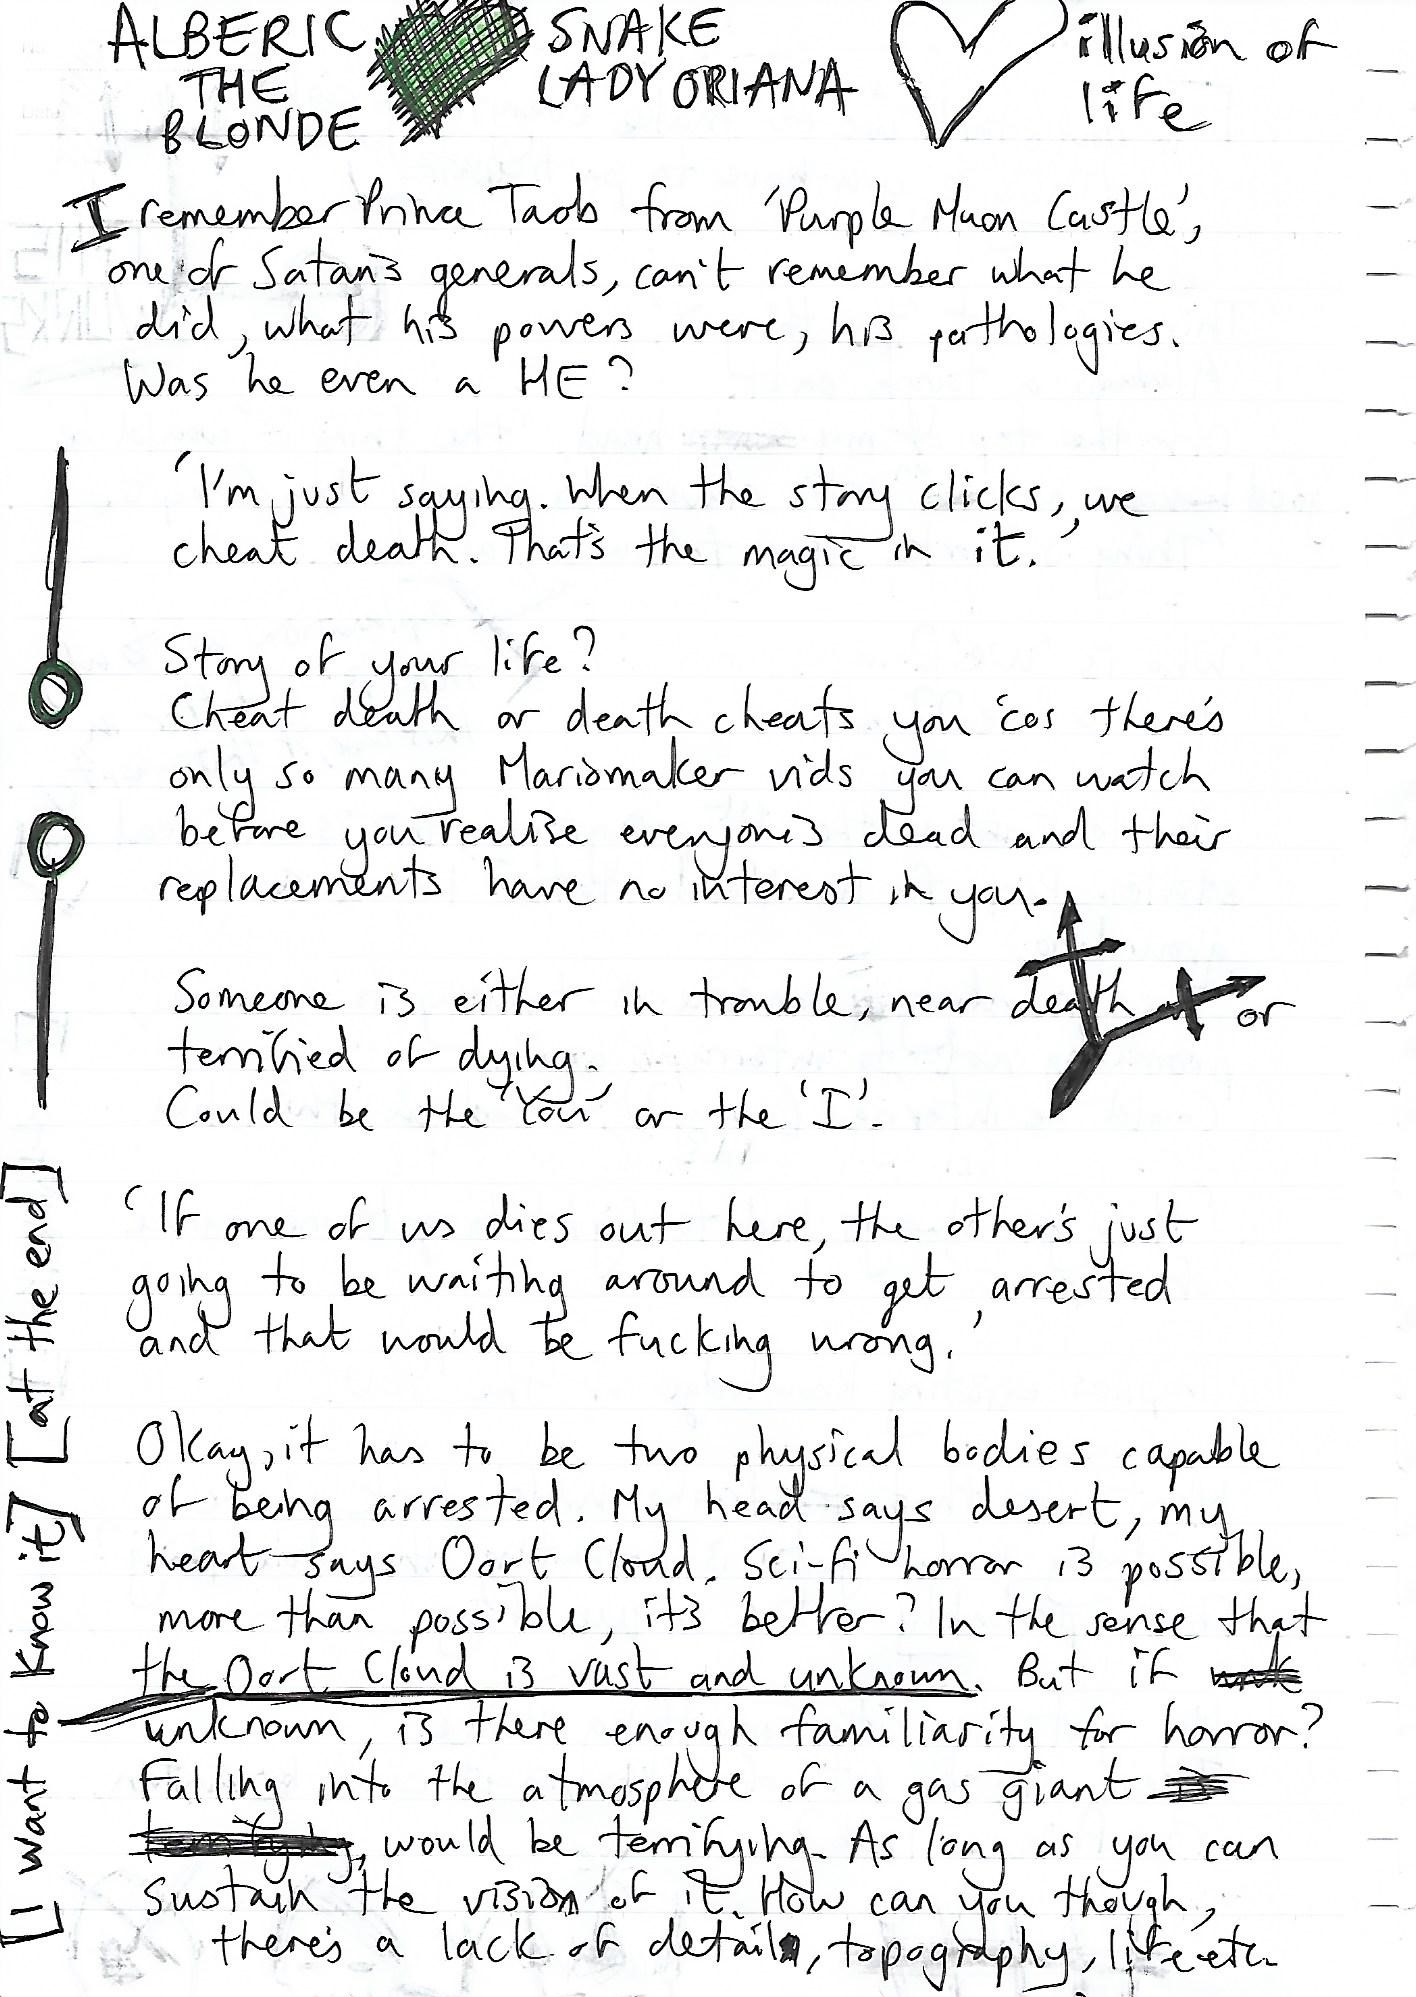 ALBERIC THE BLONDE
SNAKE LADY ORIANA
illusion of life
I remember Prince Taob from 'Purple Muon Castle',
one of Satan's generals, can't remember what he
did, what his powers were, his pathologies.
Was he even a HE?
'I'm just saying. When the story clicks, we
cheat death. That's the magic in it.'
Story of your life?
Cheat death or death cheats you 'cos there's
only so many Mariomaker vids you can watch
before you realise everyone's dead and their
replacements have no interest in you.
Someone is either in trouble, near death or
terrified of dying.
Could be the 'You' or the 'I'.
'If one of us dies out here, the other's just
going to be waiting around to get arrested
and that would be fucking wrong.'
Okay, it has to be two physical bodies capable
of being arrested. My head says desert, my
heart says Oort Cloud. Sci-fi horror is possible,
more than possible, it's better? In the sense that
the Oort Cloud is vast and unknown. But if
unknown, is there enough familiarity for horror?
Falling into the atmosphere of a gas giant
, would be terrifying. As long as you can
sustain the vision of it. How can you though,
there's a lack of detail, topography, life etc.
[I want to know it] [at the end]